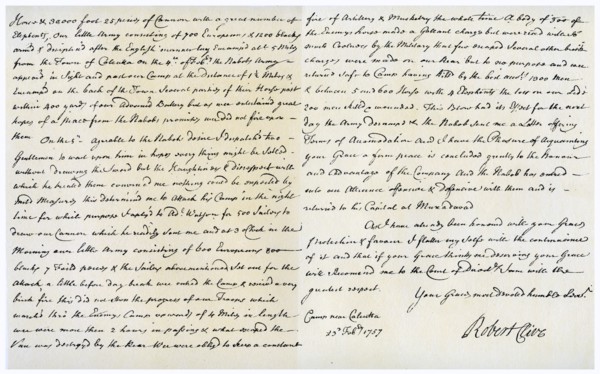 Horse & 30000 foot 25 pieces of Cannon with a great number of
Elephants, Our little Army consisting of 700 Europeans & 1200 blacks
arm'd & disciplin'd after the English manner lay Encamp'd at 5 Miles
from the Town of Calcutta on the 4th of Febry the Nabobs Army
appeard in Sight and past our Camp at the distance of 1½ Miles &
Encamp'd on the back of the Town Several parties of their Horse past
within 400 yards of our Advanced Battery but as we entertaind great
hopes of a Peace from the Nabobs promises we did not fire upon
them
On the 5th agreable to the Nabobs desire I dispatched two
Gentlemen to wait upon him in hopes everything might be Settled
without drawing the Sword but the Haughtiness & disrespect with
which he treated them convinced me nothing could be expected by
mild Measures this determined me to Attack his Camp in the night
time for which purpose I apply'd to Adml Watson for 500 Sailors to
draw our Cannon which he readily Sent me and at 3 oClock in the
Morning our little Army consisting of 600 Europeans 800
blacks 7 Field pieces & the Sailors abovementioned Set out for the
Attack a little before day break we enterd the Camp & received a very
brisk fire this did not Stop the progress of our Troops which
march'd thro the Enemys Camp upwards of 4 Miles in length
we were more then 2 hours in passing & what escaped the
Van was destroyed by the Rear We were obliged to keep a constant
fire of Artillery & Musketry the whole time A body of 300 of
the Enemys horse made a Gallant charge but were received with So
much Coolness by the Military that few escaped Several other brisk
charges were made on our Rear but to no purpose and we
returned Safe to Camp having killd by the best accts 1300 Men
& between 5 and 600 Horse with 4 Elephants the loss on our Side
200 were killed & wounded. This Blow had its Effect for the next
day the Army Decamped & the Nabob Sent me a Letter offering
Terms of Accomodation And I have the Pleasure of Acquainting
your Grace a firm peace is concluded greatly to the Honour
and Advantage of the Company And the Nabob has entered
into an Alliance offensive & Defensive with them and is
returned to his Capital at Muxadavad
As I have already been honourd with your Graces
Protection & favour I flatter my Self with the continuance
of it and that if your Grace thinks me deserving your Grace
will Recommend me to the Court of Directors I am with the
greatest respect.
Your Graces most devoted humble Servt
Camp near Calcutta
23d Febry 1757
Robert Clive